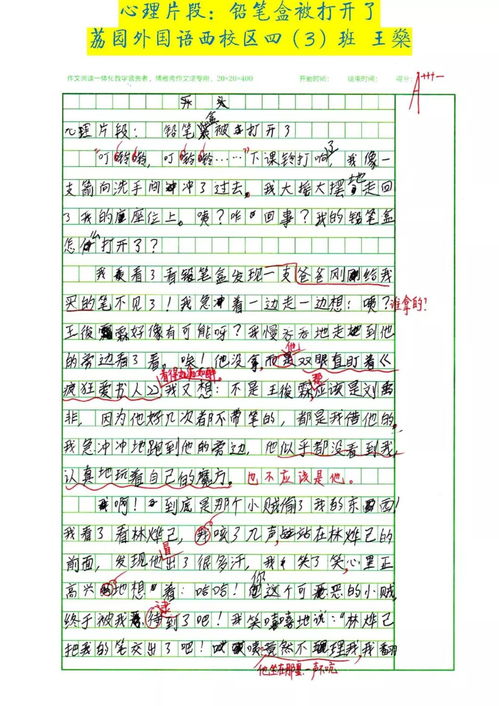 心理片段：铅笔盒被打开了
荔园外国语西校区四（3）班 王燊
作文阅读一体化教学 20×20=400 开始时间： 结束时间： 得分：
A++++
心理片段：铅笔盒被打开了
“叮铃铃，叮铃铃……”下课铃打响了，我像一
支箭向洗手间冲了过去。我大摇大摆地走回
了我的座位上。咦？咋回事？我的铅笔盒
怎么打开了？
我看了看铅笔盒发现一支爸爸刚刚给我
买的笔不见了！我急冲着一边走一边想：咦？谁拿的？
王俊霖好像有可能呀？我慢慢地走到他
的旁边看了看。唉！他没拿，他双眼直盯着《
看得如痴如醉
疯狂爱书人》我又想：不是王俊霖那应该是刘
非，因为他好几次都不带笔的，都是我借他的。
我急冲冲地跑到他的旁边，他似乎都没看到我，
认真地玩着自己的魔方。也不应该是他。
我啊！到底是那个小贼偷了我的东西！
我看了看林烨己，我咳了几声站在林烨己的
前面，发现他冒出了很多汗，我笑了笑心里正
高兴地想着：哈哈！你这个可恶的小贼
终于被我逮到了吧！我笑嘻嘻地说：“林烨己
把我的笔交出了吧！竟然不理我，我翻
他坐在那里一声不吭